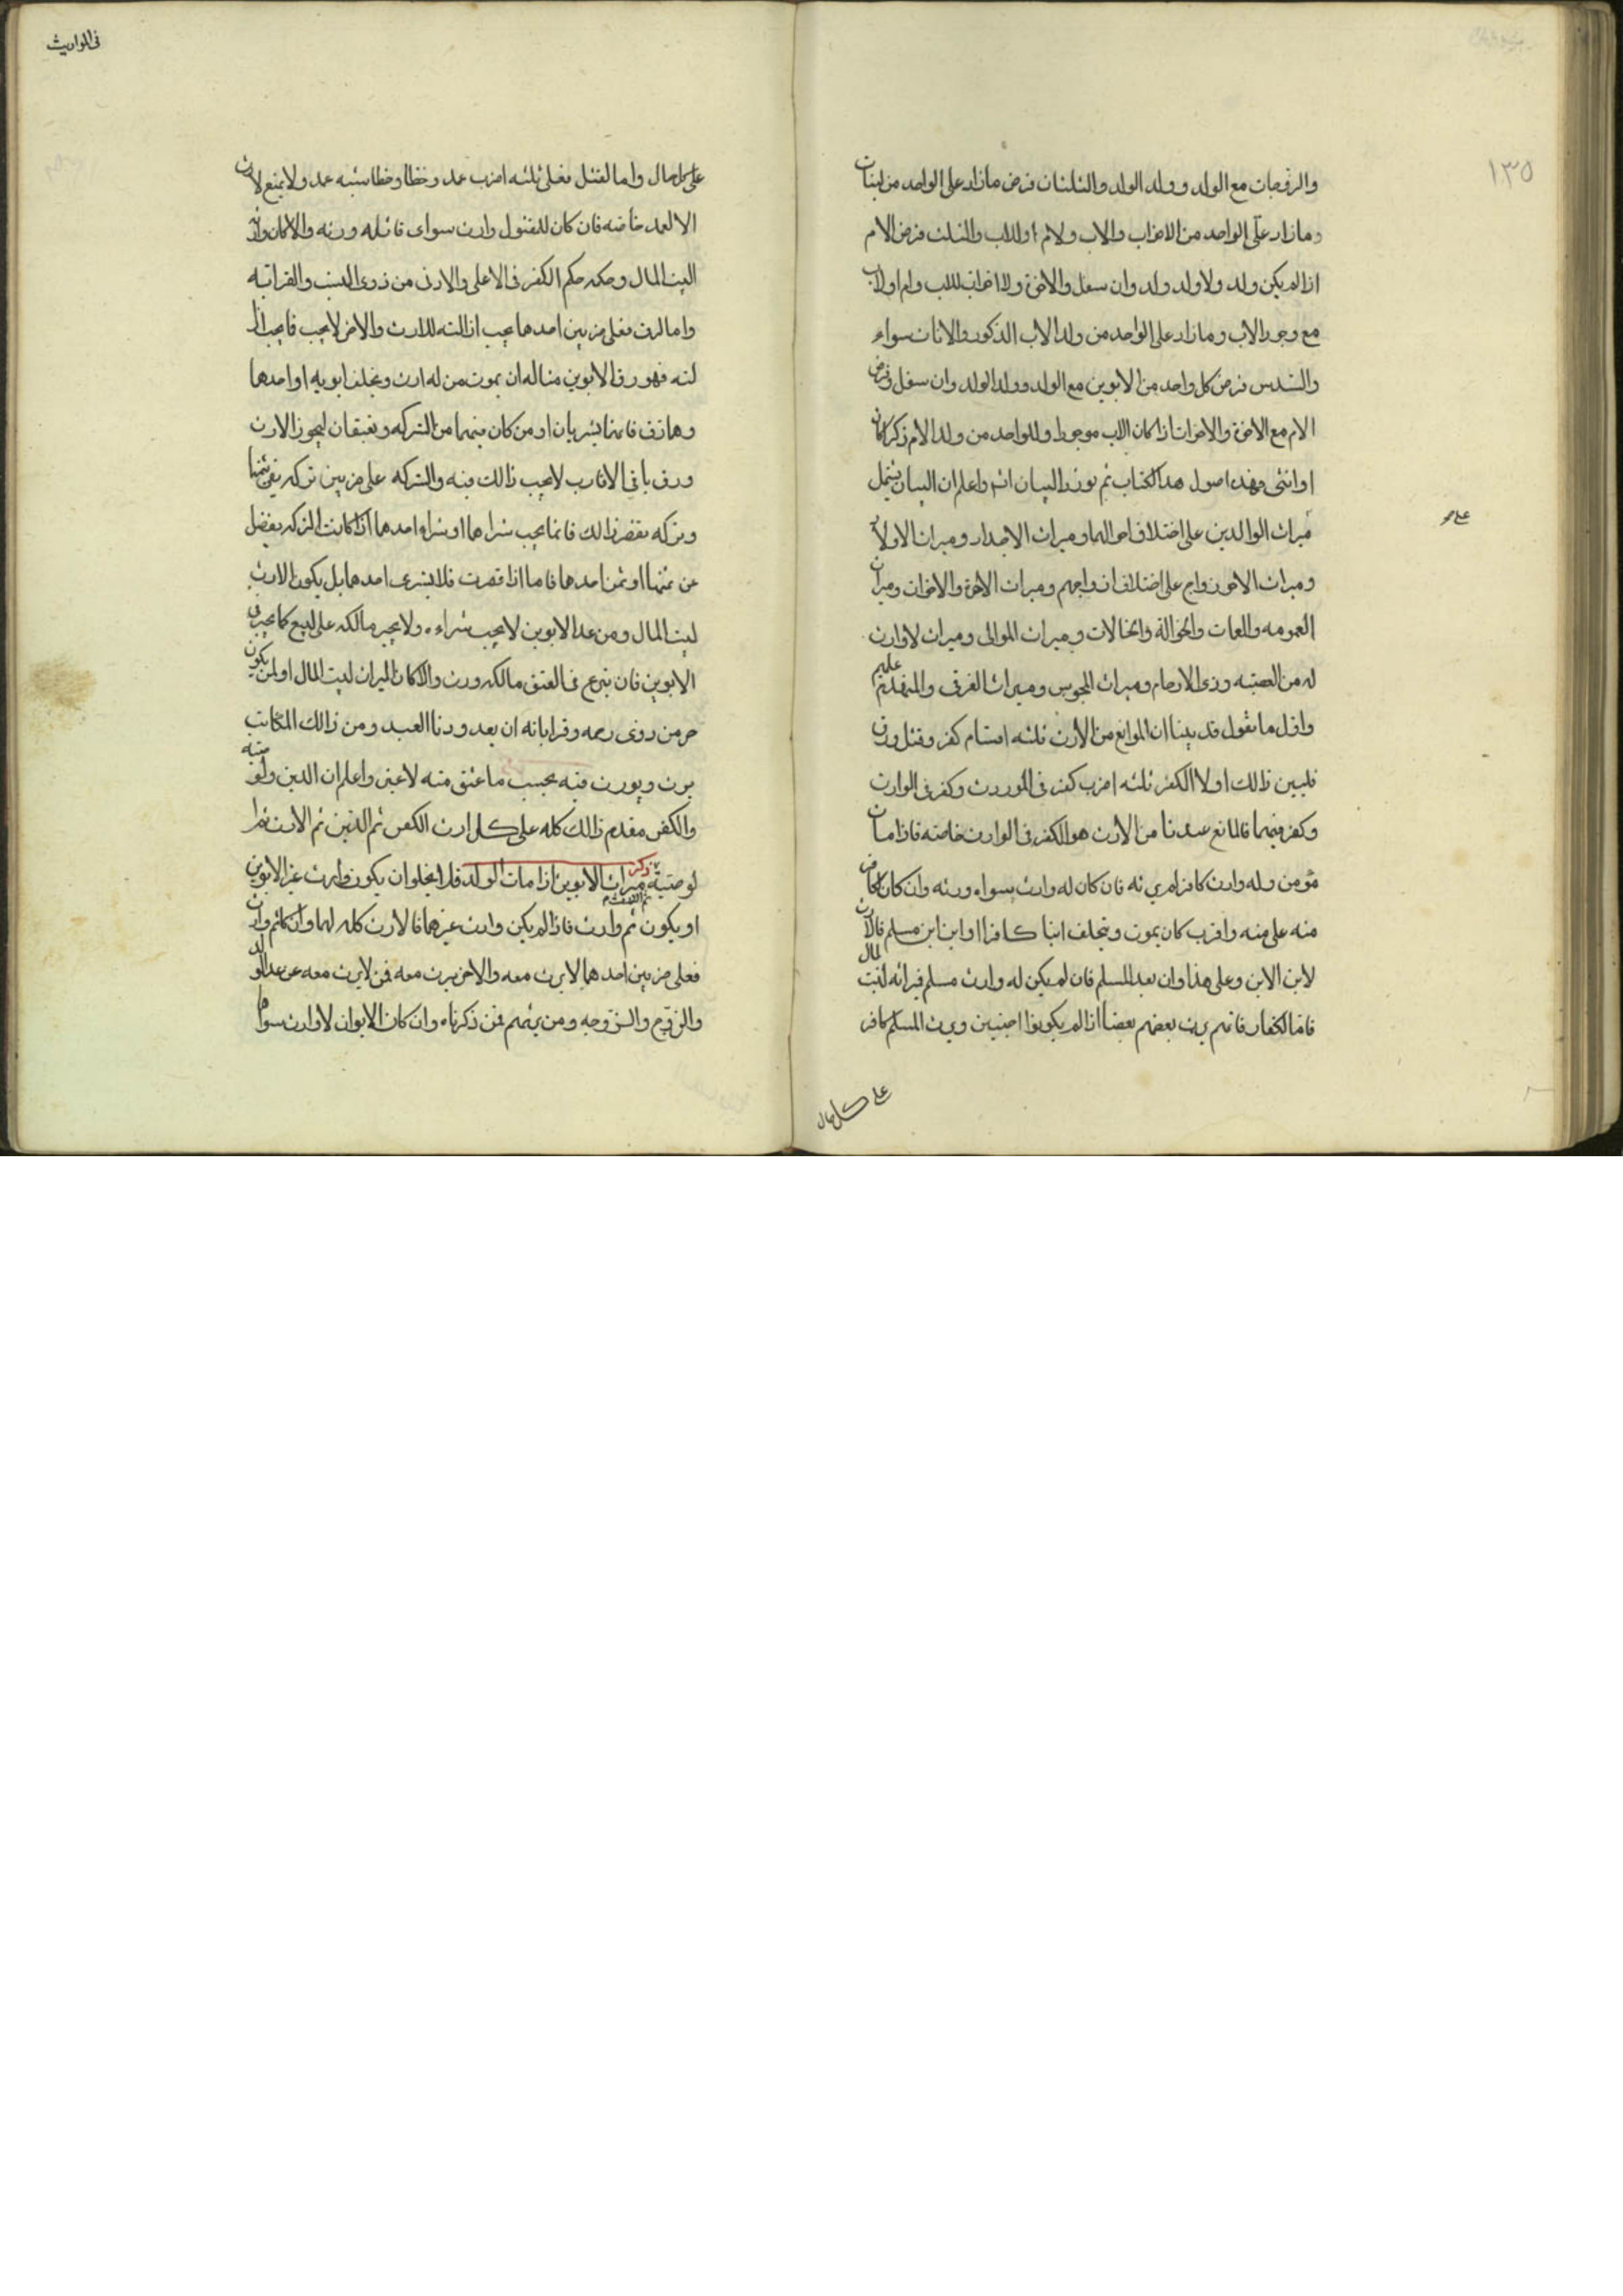 ١٣٥
والزوجات مع الولد وولد الولد والثلثان فرض ما زاد على الواحد من البنات
وما زاد على الواحد من الاخوات والاب ولام او للاب والثلث فرض الام
اذا لم يكن ولد ولا ولد ولد وان سفل والاخوة ولا اخوات للاب وام او لاب
مع وجود الاب وما زاد على الواحد من ولد الاب الذكور والاناث سواء
والسدس فرض كل واحد من الابوين مع الولد وولد الولد وان سفل وفرض
الام مع الاخوة والاخوات اذا كان الاب موجودا وللواحد من ولد الام ذكرا كان
او انثى فهذه اصول هذا الكتاب ثم نورد البيان واعلم ان البيان يشتمل
على
ميراث الوالدين على اختلاف احوالها وميراث الاجداد وميراث الاولاد
وميراث الازواج على اختلاف ازواجهم وميراث الاخوة والاخوات وميراث
العمومه والعمات والخوالة والخالات وميراث الموالى وميراث لا وارث
له من العصبه وذى الارحام وميراث المجوس وميراث الغرقى والمنهدم عليهم
واول ما نقول قد بينا ان الموانع من الارث ثلثه اقسام كفر وقتل ورق
فلنبين ذالك اولا الكفر ثلثه اضرب كفر فى الموروث وكفر فى الوارث
وكفر فيهما فالمانع عندنا من الارث هو الكفر فى الوارث خاصة فاذا مات
مؤمن وله وارث كافر لم يرثه فان كان له وارث سواه ورثه وان كان الكافر
منه على منه واقرب كان يموت ويخلف ابنا كافرا او ابن ابن مسلم فالارث
لابن الابن وعلى هذا وان بعد المسلم فان لم يكن له وارث مسلم فيراثه لبيت المال
فاما الكفار فانهم يرث بعضهم بعضا اذا لم يكونوا اجنبيين ويرث المسلم كافر
على كل حال
فى المواريث
على كل حال واما القتل فعلى ثلثه اضرب عمد وخطا وخطا شبه عمد ولا يمنع الارث
الا العمد خاصه فان كان للمقتول وارث سواى قاتله ورثه والا كان وارثه
البيت المال وحكمه حكم الكفر فى الاعلى والادنى من ذوى النسب والقرابه
واما الرق فعلى ضربين احدهما يجب ازالته للارث والاخر لا يجب فما يجب ازا
لته فهو رق الابوين مثاله ان يموت من له ارث ويخلف ابويه او احدهما
وهما رق فانهما يشريان او من كان منهما من التركه ويعتقان ليحوز الارث
ورق باقى الاقارب لا يجب ذالك فيه والتركه على ضربين تركه تفى بثمنها
وتركه تقصر ذالك فانما يجب شراهما او شراء احدهما اذا كانت التركه تفضل
عن ثمنهما او ثمن احدهما فاما اذا قصرت فلا يشرى احدهما بل يكون الارث
لبيت المال ومن عدا الابوين لا يجب شراءه ولا يجبر مالكه على البيع كما يجبر فى
الابوين فان تبرع فى العتق مالكه ورث والا كان الميراث لبيت المال او لمن يكون
حر من ذوى رحمه وقراباته ان بعد ودنا العبد ومن ذالك المكاتب
يرث ويورث فيه بحسب ما عتق منه لا غير واعلم ان الدين والوصيه
والكفن مقدم ذالك كله على كل ارث الكفن ثم الدين ثم الارث ثم ا
لوصيته ثم القسمه ذكر ميراث الابوين اذا مات الولد فلا يخلوا ان يكون وارث غير الابوين
او يكون ثم وارث فاذا لم يكن وارث غيرهما فالارث كله لهما وان كان ثم وارث
فعلى ضربين احدهما لا يرث معه والاخر يرث معه فمن لا يرث معه من عدا الولد
والزوج والزوجه ومن يرثهم فمن ذكرناه وان كان الابوان لا وارث سواهما